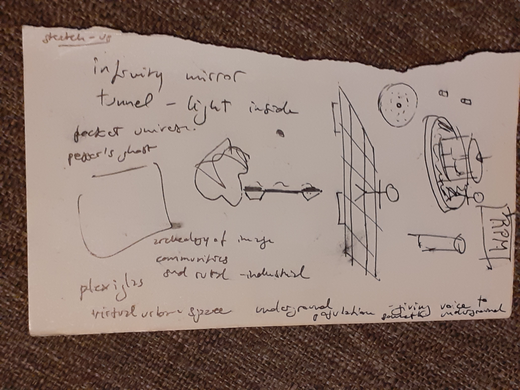 sketch-up
infinity mirror
tunnel - light inside
pocket universe:
pepper's ghost
archeology of image
communities
and rural - industrial
plexiglas
virtual urban space
underground population - giving voice to
underground
ARPM